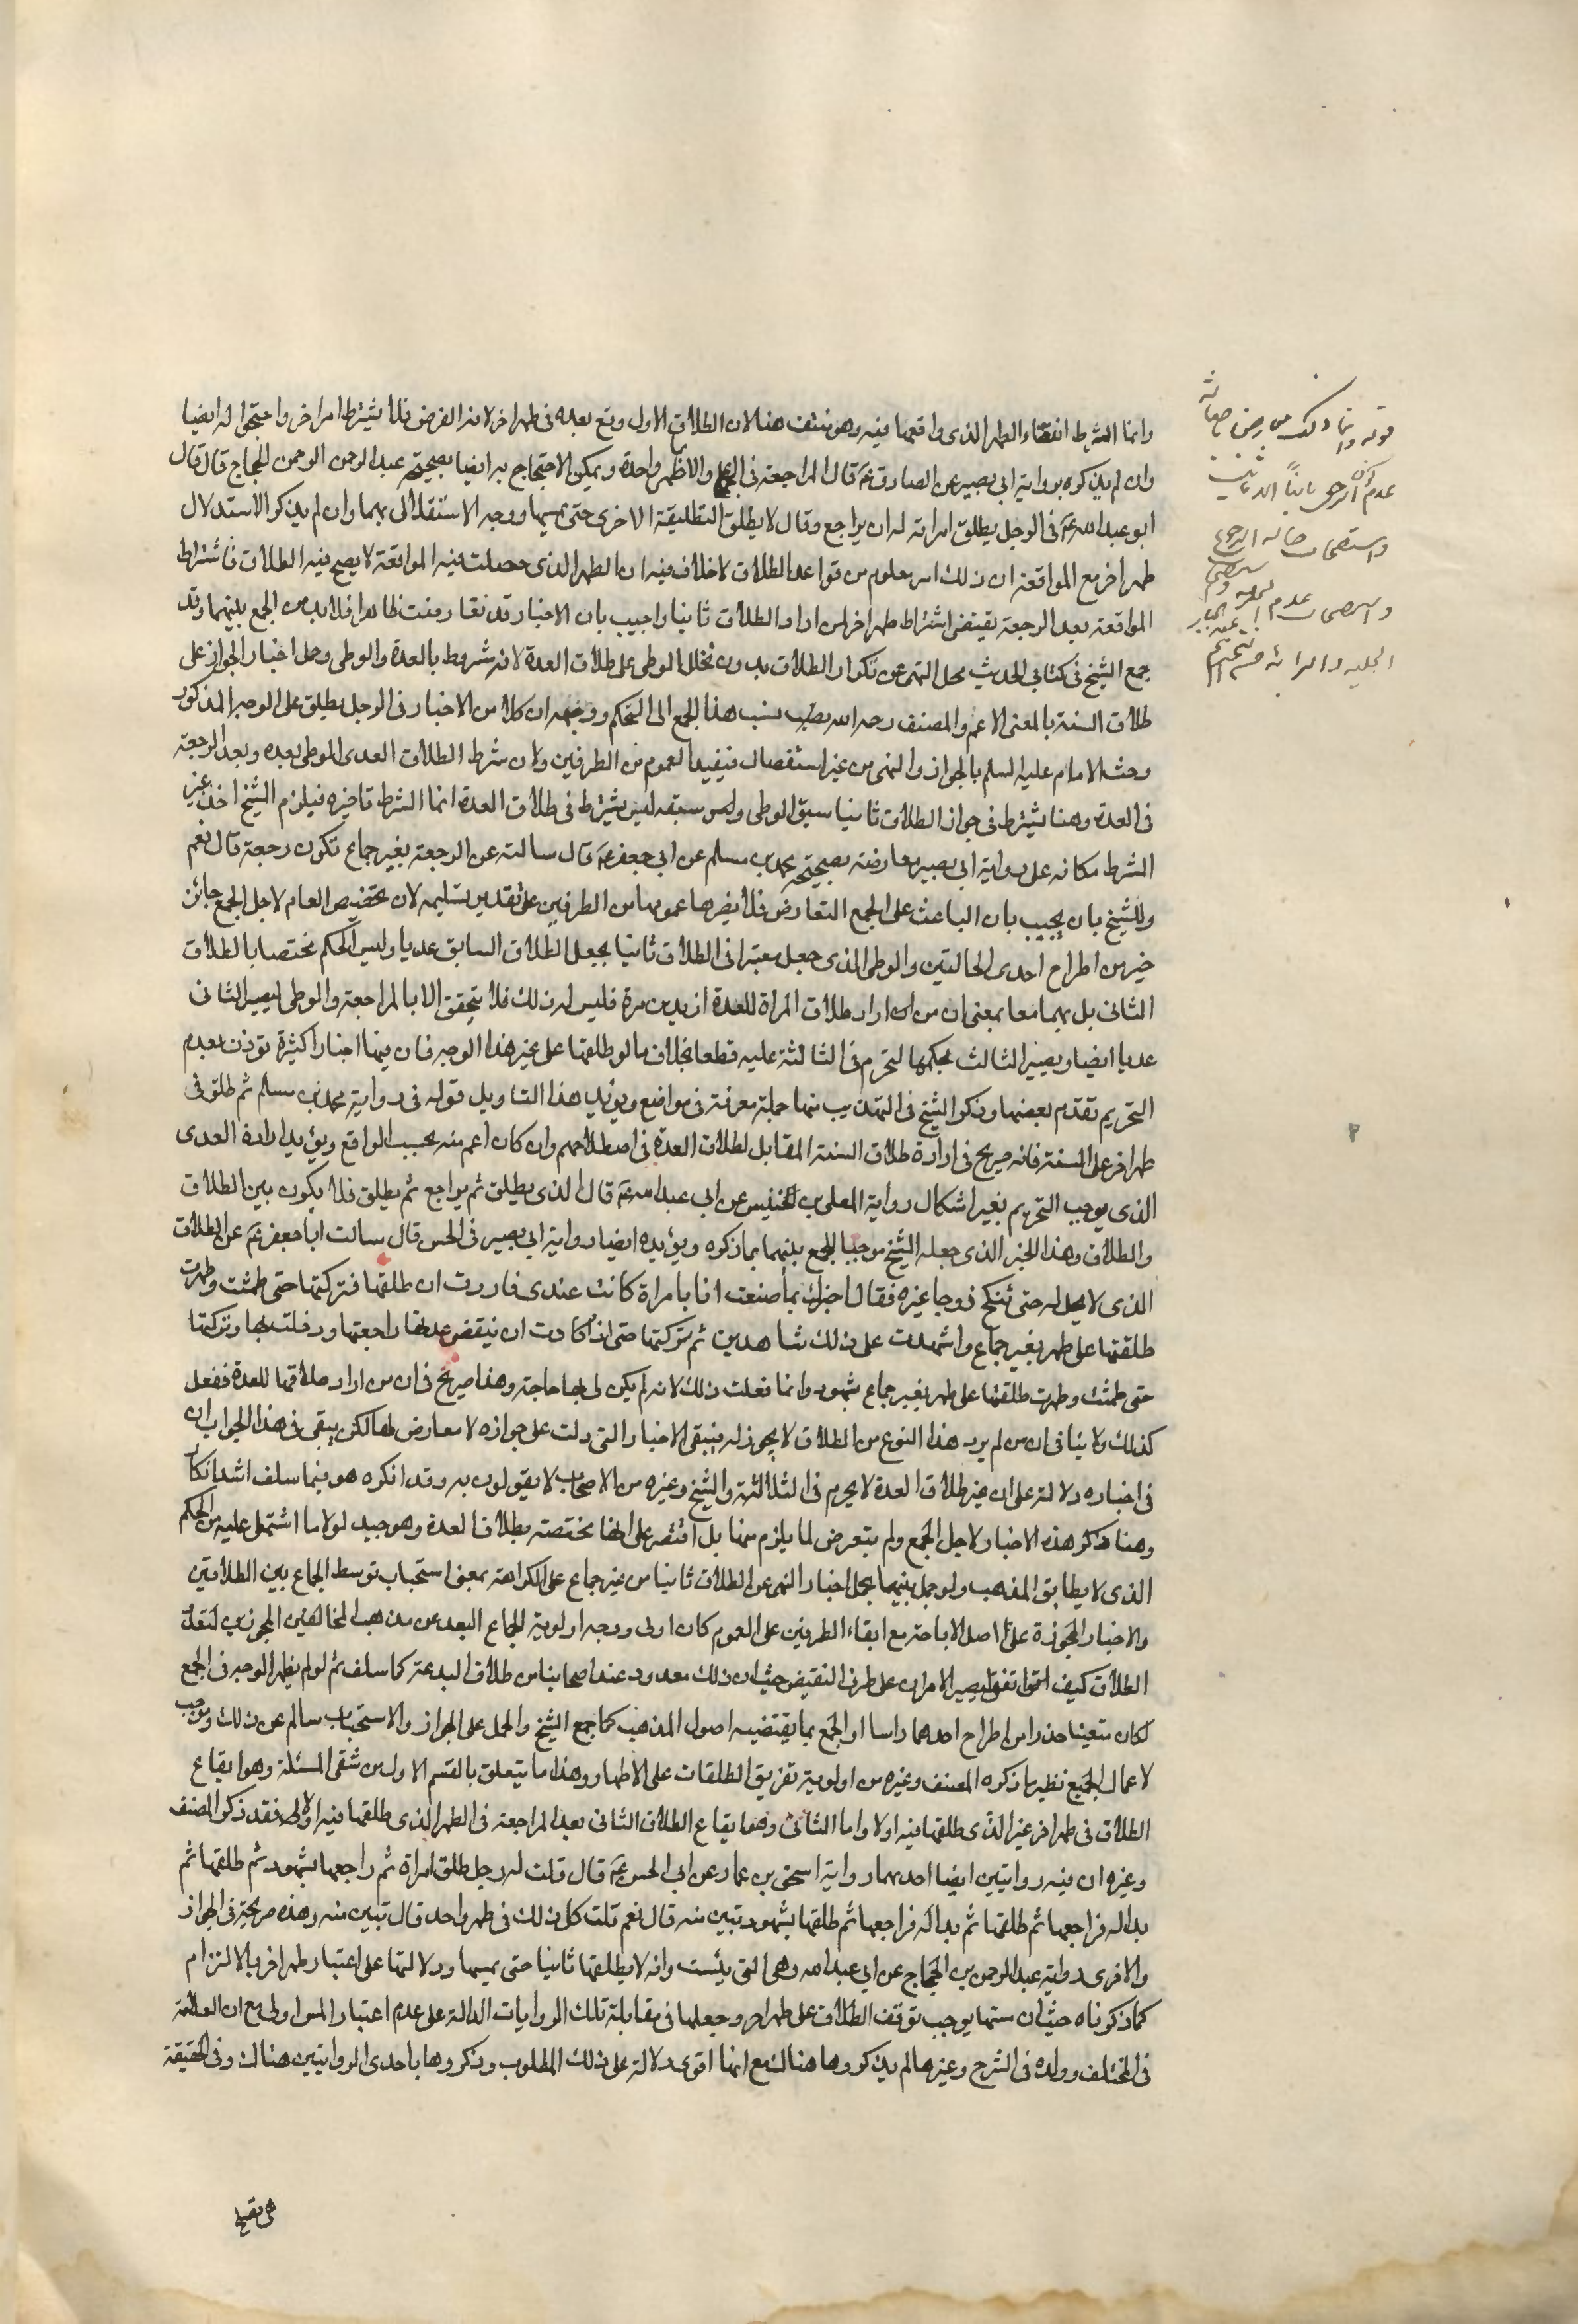 وانما الشرط انقضاء الطهر الذى واقعها فيه وهو منتف هنا لان الطلاق الاول وقع بعده فى طهر اخر لانه الفرض فلا يشترط امر اخر واحتجوا له ايضا
وان لم يذكره برواية ابى بصير عن الصادق عم قال المراجعة فى الجماع والا فانما هى واحدة ويمكن الاحتجاج به ايضا بصحيحة عبد الرحمن الحجاج قال قال
ابو عبد الله عم فى الرجل يطلق امراته له ان يراجع وقال لا يطلق التطليقة الاخرى حتى يمسها ووجه الاستدلال بهما وان لم يذكر الاستدلال
طهر اخر مع المواقعة ان ذلك امر معلوم من قواعد الطلاق لا خلاف فيه ان الطهر الذى حصلت فيه المواقعة لا يصح فيه الطلاق فاشتراط
المواقعة بعد الرجعة يقتضى اشتراط طهر اخر لمن اراد الطلاق ثانيا واجيب بان الاخبار قد تعارضت ظاهرا فلا بد من الجمع بينهما وقد
جمع الشيخ فى كتابى الحديث بحمل النهى عن تكرار الطلاق بدون تخلل الوطى على طلاق العدة لانه مشروط بالعدة والوطى وحمل اخبار الجواز على
طلاق السنة بالمعنى الاعم والمصنف رحمه الله نسب هذا الجمع الى التحكم ووجهه ان كلا من الاخبار فى الرجل يطلق على الوجه المذكور
وحث الامام عليه السلم بالجواز والنهى من غير استفصال فيفيد العموم من الطرفين ولان شرط الطلاق العدى الوطى بعده وبعد الرجعة
فى العدة وهنا يشترط فى جواز الطلاق ثانيا سبق الوطى وليس سبقه ليس بشرط فى طلاق العدة انما الشرط تاخره فيلزم الشيخ اخذ غير
الشرط مكانه على رواية ابى بصير معارضة بصحيحة محمد بن مسلم عن ابى جعفر عم قال سالته عن الرجعة بغير جماع تكون رجعة قال نعم
وللشيخ بان يجيب بان الباعث على الجمع التعارض فلا يضرها عمومها من الطرفين على تقدير تسليمه لان تخصيص العام لاجل الجمع جائز
خير من اطراح احدى الحالتين والوطى الذى جعل معتبرا فى الطلاق ثانيا يجعل الطلاق السابق عديا وليس الحكم مختصا بالطلاق
الثانى بل بهما معا بمعنى ان من اراد طلاق المراة للعدة ازيد من مرة فليس له ذلك فلا يتحقق الا بالمراجعة والوطى ليصير الثانى
عديا ايضا ويصير الثالث بحكمها لتحرم فى الثالثة عليه قطعا بخلاف ما لو طلقها على غير هذا الوجه فان فيها اخبارا كثيرة توذن بعدم
التحريم تقدم بعضها وذكر الشيخ فى التهذيب منها جملة معرفة فى مواضع ويؤيد هذا التاويل قوله فى رواية محمد بن مسلم ثم طلق فى
طهر اخر على السنة فانه صريح فى ارادة طلاق السنة المقابل لطلاق العدة فى اصطلاحهم وان كان اعم منه بحسب الواقع ويؤيد ارادة العدى
الذى يوجب التحريم بغير اشكال رواية المعلى بن خنيس عن ابى عبد الله عم قال الذى يطلق ثم يراجع ثم يطلق فلا يكون بين الطلاق
والطلاق وهذا الخبر الذى جعله الشيخ موجبا للجمع بينهما بما ذكره ويؤيده ايضا رواية ابى بصير فى الحسن قال سالت ابا جعفر عم عن الطلاق
الذى لا يحل له حتى تنكح زوجا غيره فقال اخبرك بما صنعت انا بامراة كانت عندى فاردت ان طلقها فتركتها حتى طمثت وطهرت
طلقتها على طهر بغير جماع واشهدت على ذلك شاهدين ثم تركتها حتى اذا كادت ان تنقضى عدتها راجعتها ودخلت بها وتركتها
حتى طمثت وطهرت طلقتها على طهر بغير جماع بشهود وانما فعلت ذلك لانه لم يكن لى بها حاجة وهذا صريح فى ان من اراد طلاقها للعدة ففعل
كذلك ولا ينافى ان من لم يرد هذا النوع من الطلاق لا يجوز له فيبقى الاخبار التى دلت على جوازه لا معارض لها لكن يبقى فى هذا الجواب ان
فى اخباره دلالة على ان غير طلاق العدة لا يحرم فى الثلاثة والشيخ وغيره من الاصحاب لا يقولون به وقد انكره هو فيما سلف اشد انكار
وهنا ذكر هذه الاخبار لاجل الجمع ولم يتعرض لما يلزم منها بل اقتصر على انها مختصة بطلاق العدة وهو جيد لولا ما اشتمل عليه من الحكم
الذى لا يطابق المذهب ولو جمل بينهما بحمل اخبار النهى عن الطلاق ثانيا من غير جماع على الكراهة بمعنى استحباب توسط الجماع بين الطلاقين
والاخبار المجوزة على اصل الاباحة مع ابقاء الطرفين على العموم كان اولى ووجه اولوية الجماع البعد عن مذهب المخالفين المجوزين لتعدد
الطلاق كيف اتفق ليصير الامران على طرفى النقيض حيث ان ذلك معدود عند اصحابنا من طلاق البدعة كما سلف ثم لو لم يظهر الوجه فى الجمع
لكان متعينا حذرا من اطراح احدهما راسا او الجمع بما يقتضيه اصول المذهب كما جمع الشيخ والحمل على الجواز والاستحباب سالم عن ذلك وموجب
لاعمال الجميع نظير ما ذكره المصنف وغيره من اولوية تفريق الطلقات على الاطهار وهذا ما يتعلق بالقسم الاول من شقى المسئلة وهو ايقاع
الطلاق فى طهر اخر غير الذى طلقها فيه اولا واما الثانى وهو ايقاع الطلاق الثانى بعد المراجعة فى الطهر الذى طلقها فيه الاولى فقد ذكر المصنف
وغيره ان فيه روايتين ايضا احدهما رواية اسحق بن عمار عن ابى الحسن عم قال قلت له رجل طلق امراة ثم راجعها بشهود ثم طلقها ثم
بدا له فراجعها ثم طلقها ثم بدا له فراجعها ثم طلقها بشهود تبين منه قال نعم قلت كل ذلك فى طهر واحد قال تبين منه وهذه صريحة فى الجواز
والاخرى رواية عبد الرحمن بن الحجاج عن ابى عبد الله وهى التى وانه لا يطلقها ثانيا حتى يمسها ودلالتها على اعتبار طهر اخر بالالتزام
كما ذكرناه حيث ان مسها يوجب توقف الطلاق على طهر اخر وجعلها فى مقابلة تلك الروايات الدالة على عدم اعتبار المس اولى مع ان العلامة
فى المختلف وولده فى الشرح وغيرهما لم يذكروها هناك مع انها اقوى دلالة على ذلك المطلوب وذكروها باحدى الروايتين هناك وفى الحقيقة
قوله وانما ذلك من
عدم
واستصحاب حاله